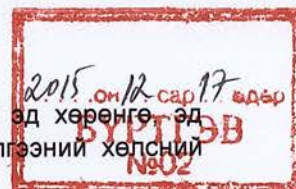 2015 он 12 сар 17 өдөр
эд хөрөнгө, эд
БҮРТГЭВ
лгээний хөлсний
№02